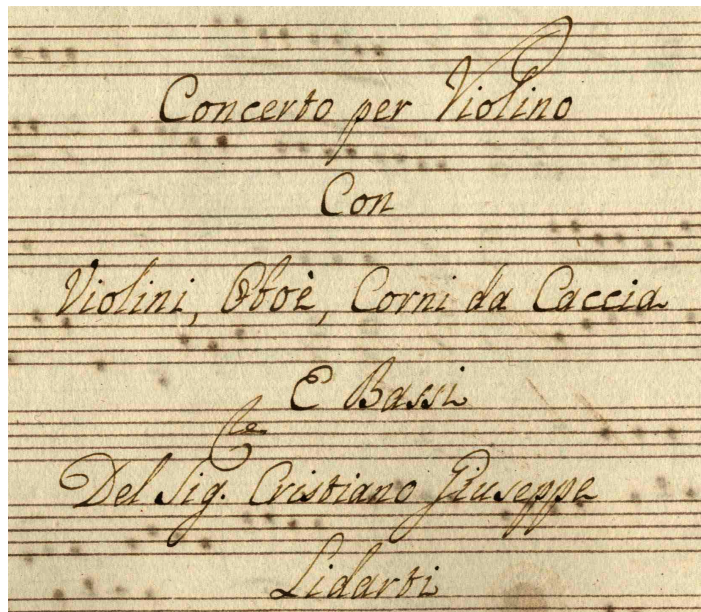 Concerto per Violino
Con
Violini, Oboè, Corni da Caccia
E Bassi
Del Sig.re Cristiano Giuseppe
Lidarti